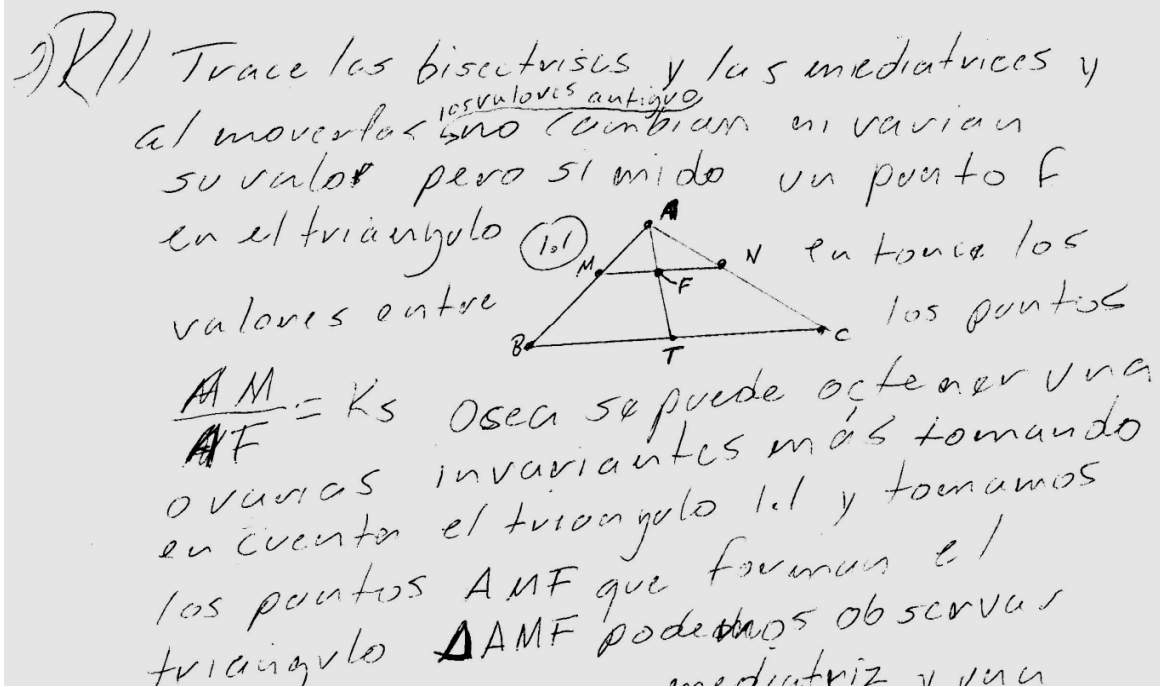 2) R// Trace las bisectrises y las mediatrices y
los valores antiguo
al moverlas no cambian ni varian
su valor pero si mido un punto F
en el triangulo 1.1 entonce los
A
M
N
F
B
T
C
valores entre los puntos
AM
AF = K5 Osea se puede octener una
o varias invariantes más tomando
en cuenta el triangulo 1.1 y tomamos
los puntos AMF que forman el
triangulo ΔAMF podemos observar
mediatriz y una